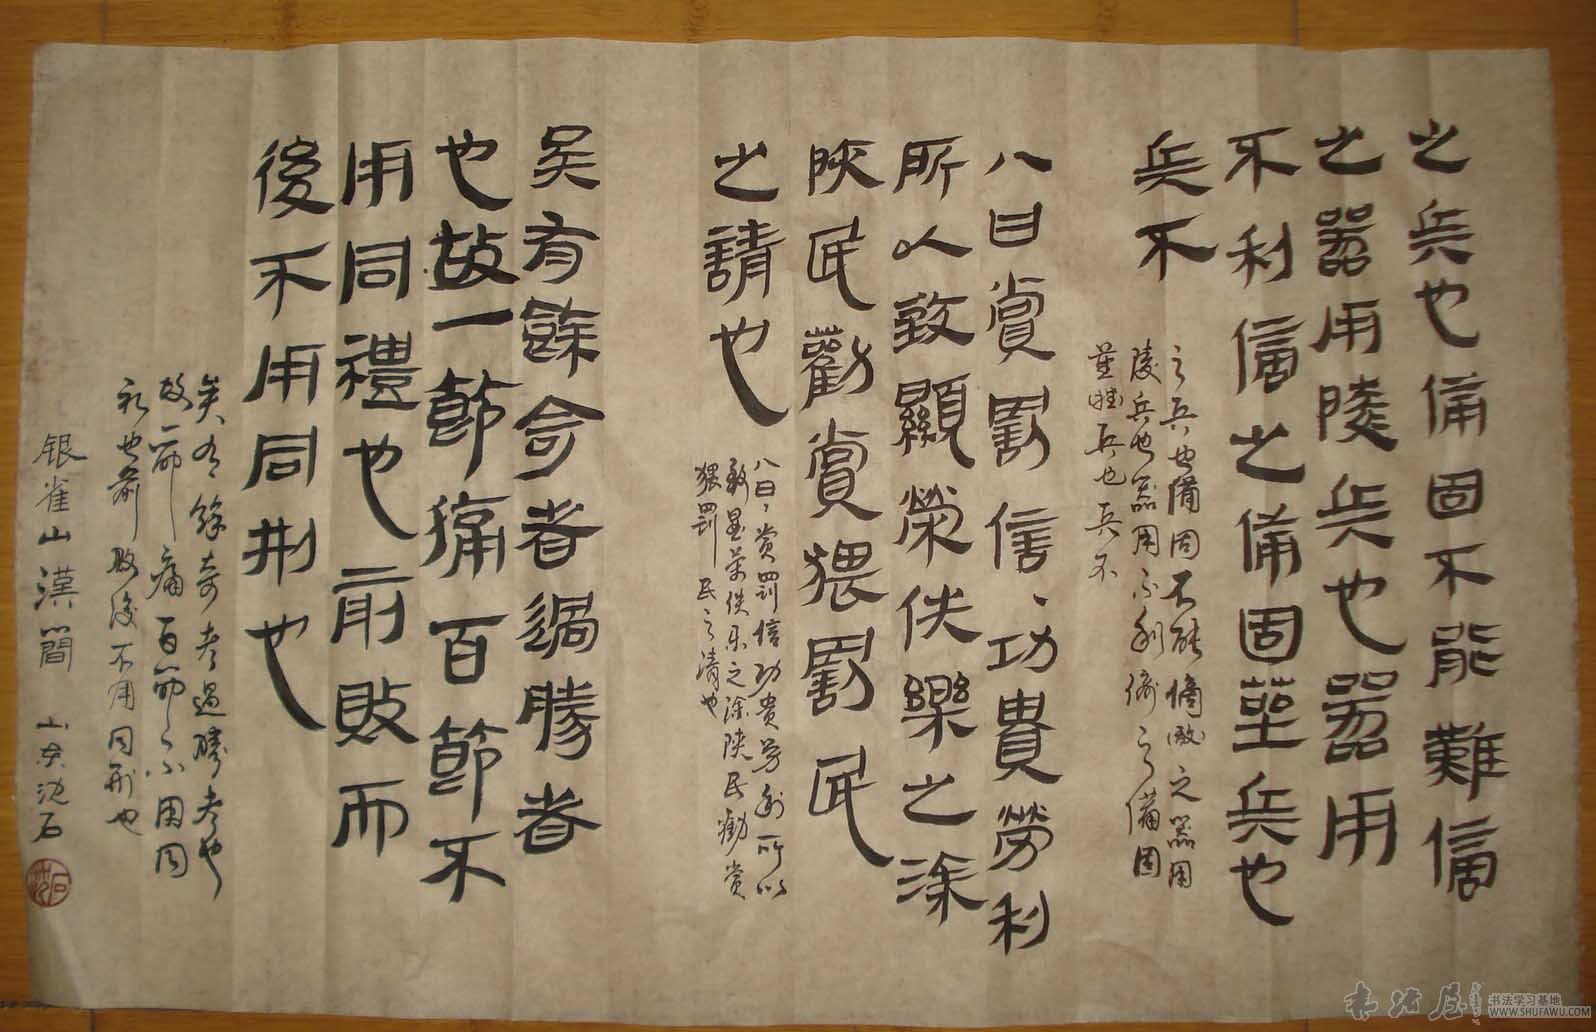 之兵也備固不能難敵
之器用陵兵也器用
不利敵之備固莝兵也
兵不
之兵也備固不能備敵之器用
陵兵也器用不利備之備固
莝兵也兵不
八曰賞罰信、功貴勞利
所以致顯榮佚樂之涂
陝民勸賞猥罰民
之請也
八曰、賞罰信功貴勞利所以
致显荣佚乐之涂陝民勸赏
猥罰民之清也
矣有餘奇者過勝者
也故一節痛百節不
用同禮也前敗而
後不用同刑也
矣有餘奇者過勝者也
故一節痛百節不用同
礼也前敗後不用同刑也
银雀山漢簡
山东沈石
书法屋
书法学习基地
WWW.SHUFAWU.COM